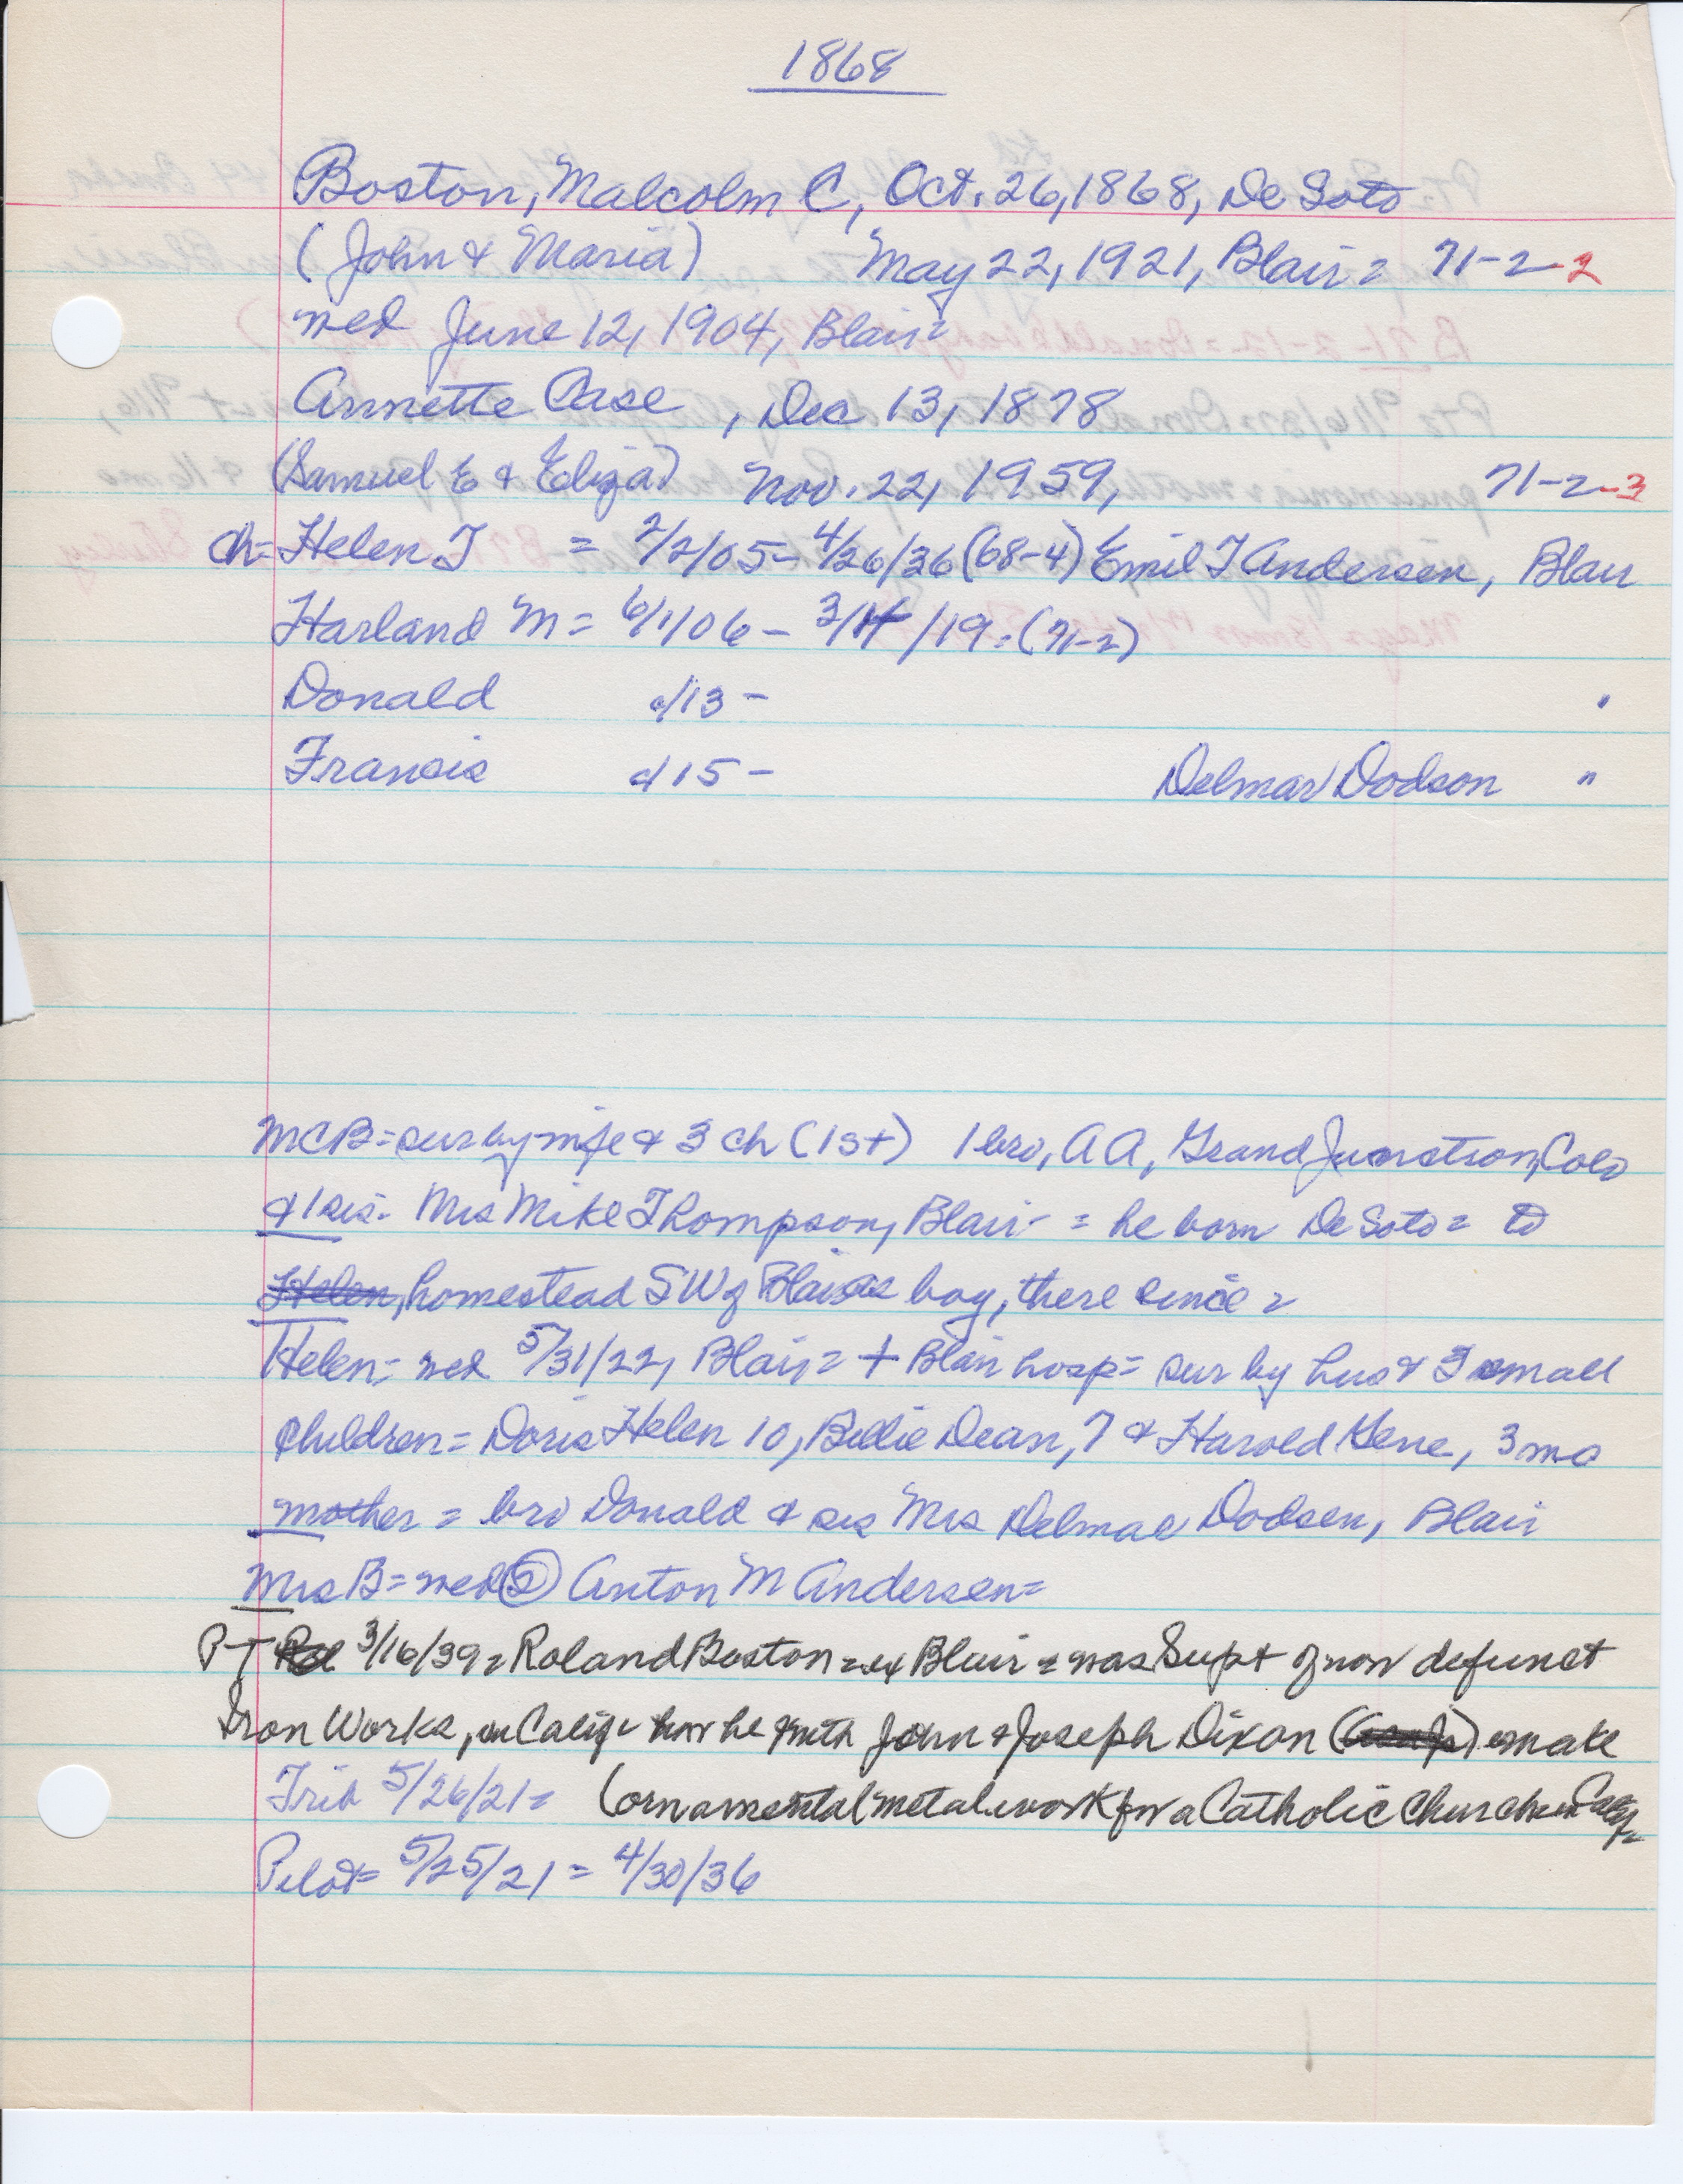 1868
Boston, Malcolm C, Oct. 26, 1868, De Soto
(John & Maria) May 22, 1921, Blair = 71-2-2
wed June 12, 1904, Blair =
Annette Case, Dec 13, 1878
(Samuel E & Eliza) Nov. 22, 1959, 71-2-3
ch= Helen I = 2/2/05 - 4/26/36 (68-4) Emil T Andersen, Blair
Harland M = 6/1/06 - 3/14/19 = (71-2)
Donald c/13 - "
Francis c/15 - Delmar Dodson "
MCB = sur by wife & 3 ch (1st) 1 bro, A A, Grand Junction, Colo
& 1 sis - Mrs Mike Thompson, Blair - = he born De Soto = to
Helen, homestead SW of Blair as boy, there since =
Helen = wed 5/31/22, Blair = + Blair hosp = sur by hus & 3 small
children = Doris Helen 10, Billie Dean, 7 & Harold Gene, 3 mo
mother = bro Donald & sis Mrs Delmar Dodsen, Blair
Mrs B = wed (2) Anton M Andersen =
PT 3/16/39 = Roland Boston = ex Blair = was Supt of now defunct
Iron Works, in Calif = now he with John & Joseph Dixon make
Trib 5/26/21 = (ornamental metal work for a Catholic Church in Calif =
Pilot = 5/25/21 = 4/30/36